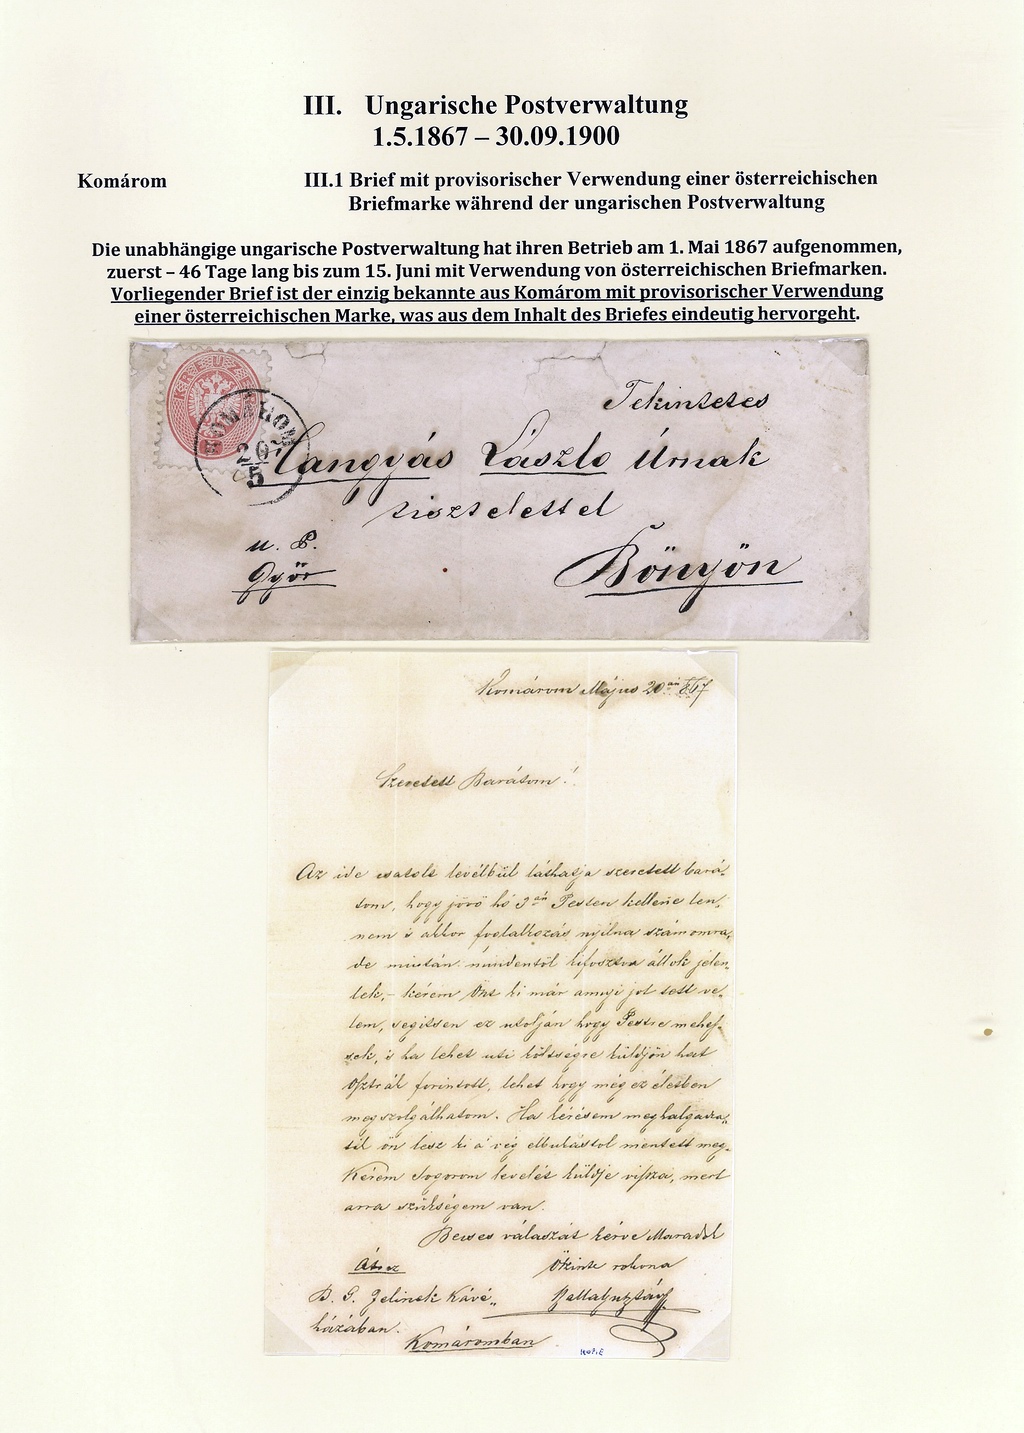 III. Ungarische Postverwaltung
1.5.1867 – 30.09.1900
Komárom
III.1 Brief mit provisorischer Verwendung einer österreichischen
Briefmarke während der ungarischen Postverwaltung
Die unabhängige ungarische Postverwaltung hat ihren Betrieb am 1. Mai 1867 aufgenommen,
zuerst – 46 Tage lang bis zum 15. Juni mit Verwendung von österreichischen Briefmarken.
Vorliegender Brief ist der einzig bekannte aus Komárom mit provisorischer Verwendung
einer österreichischen Marke, was aus dem Inhalt des Briefes eindeutig hervorgeht.
KREUZER
KOMÁROM
20/5
Tekintetes
Hangyás László Úrnak
tisztelettel
u. P.
Győr
Bönyön
Komárom Május 20án 867
Szeretett Barátom!
Az ide csatolt levélbül láthatja szeretett bará-
tom, hogy jövö hó 3án Pesten kellene len,
nem s akkor foglalkozás nyílna számomra,
de miután mindentöl kifosztva állok jelen-
lek, – kérem Önt ki már annyi jot tett ve-
lem, segitsen ez utolján hogy Pestre mehes-
sek, s ha lehet uti költségre küldjön hat
Osztrák forintott, lehet hogy még ez életben
megszolgálhatom. Ha kérésem meghalgatta,
tik ön lesz ki a' vég elbukástol mentett meg.
Kérem Sogorom levelét küldje vissza, mert
arra szükségem van.
Becses válaszát kérve Maradok
Öszinte rokona
B. G. Jelinek Kávé,,
házában.
Komáromban
KOPIE